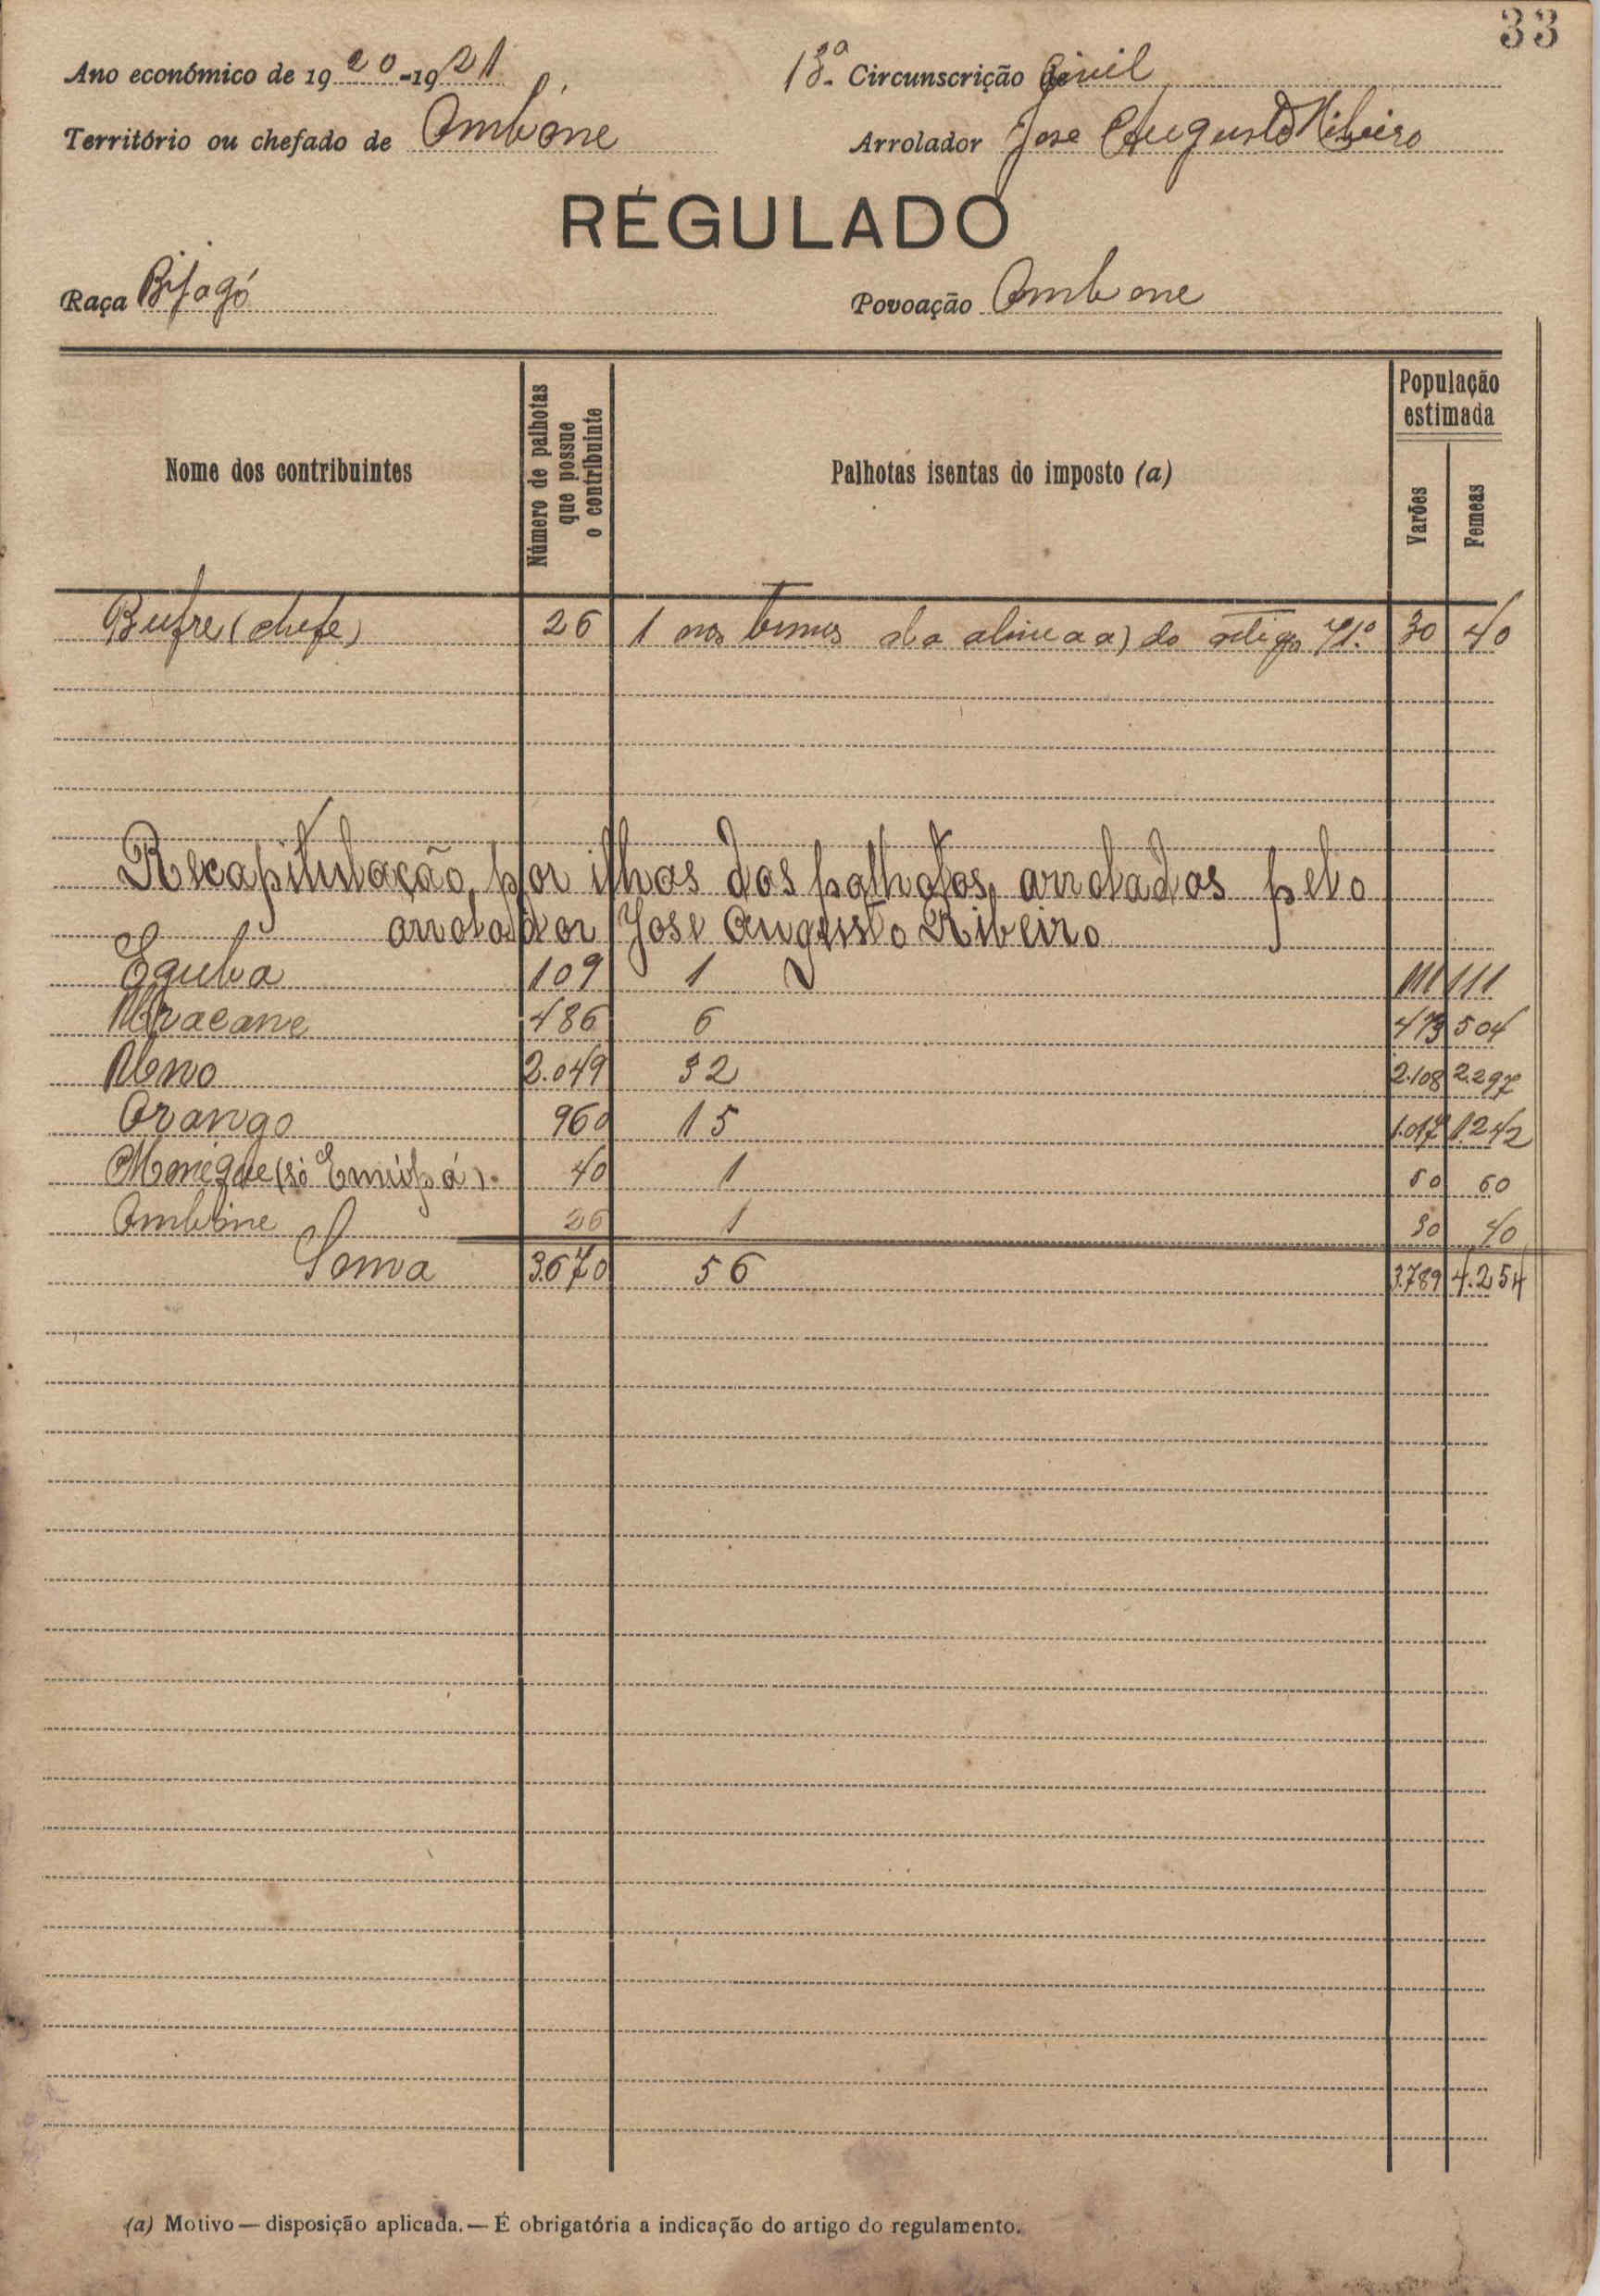 33
Ano económico de 1920-1921 13ª Circunscrição Civil
Território ou chefado de Ambône Arrolador Jose Augusto Ribeiro
RÉGULADO
Raça Bijagó Povoação Ambone
Nome dos contribuintes
Número de palhotas que possue o contribuinte
Palhotas isentas do imposto (a)
População estimada
Varões
Femeas
Bufre (chefe) 26 1 nos termos da alinea a) do artigo 71.º 30 40
Recapitulação, por ilhas das palhotas, arroladas pelo
arrolador Jose Augusto Ribeiro
Eguba 109 1 111 111
486 6 473 504
Uno 2.049 32 2.108 2.297
Orango 960 15 1.017 1.242
Meneque (só 40 1 50 60
Ambône 26 1 30 40
Soma 3.670 56 3.789 4.254
(a) Motivo — disposição aplicada. — É obrigatória a indicação do artigo do regulamento.